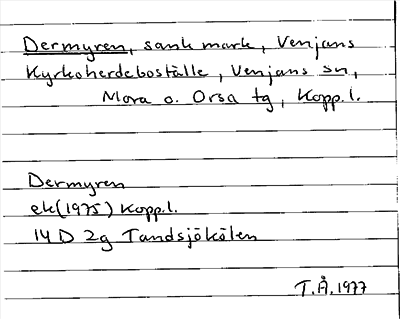 Dermyren, sank mark, Venjans
Kyrkoherdeboställe, Venjans sn,
Mora o. Orsa tg, Kopp.l.
Dermyren
ek(1975) Kopp.l.
14 D 2g Tandsjökölen
T.Å.1977